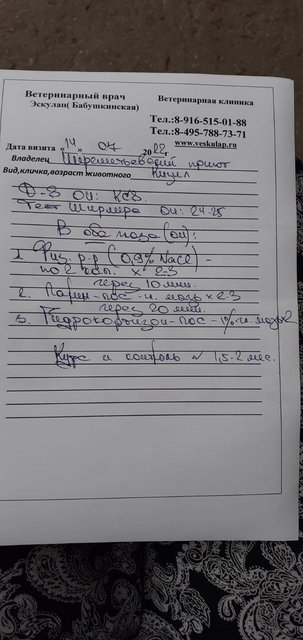 Ветеринарный врач
Эскулап( Бабушкинская)
Ветеринарная клиника
Тел.:8-916-515-01-88
Тел.:8-495-788-73-71
www.veskulap.ru
Дата визита «14» 07 2022г
Владелец Шереметьевский приют
Вид,кличка,возраст животного
Д-З OU: KCS.
Тест Ширмера OU: 24-25
В оба глаза (OU):
1. Физ. р-р (0,9% NaCl) -
по 2 кап. х 2-3
через 10 мин.
2. Парин-пос-н. мазь х 2-3
через 20 мин.
3. Гидрокортизон-пос-1% н. мазь х2
Курс и контроль ~ 1,5-2 мес.